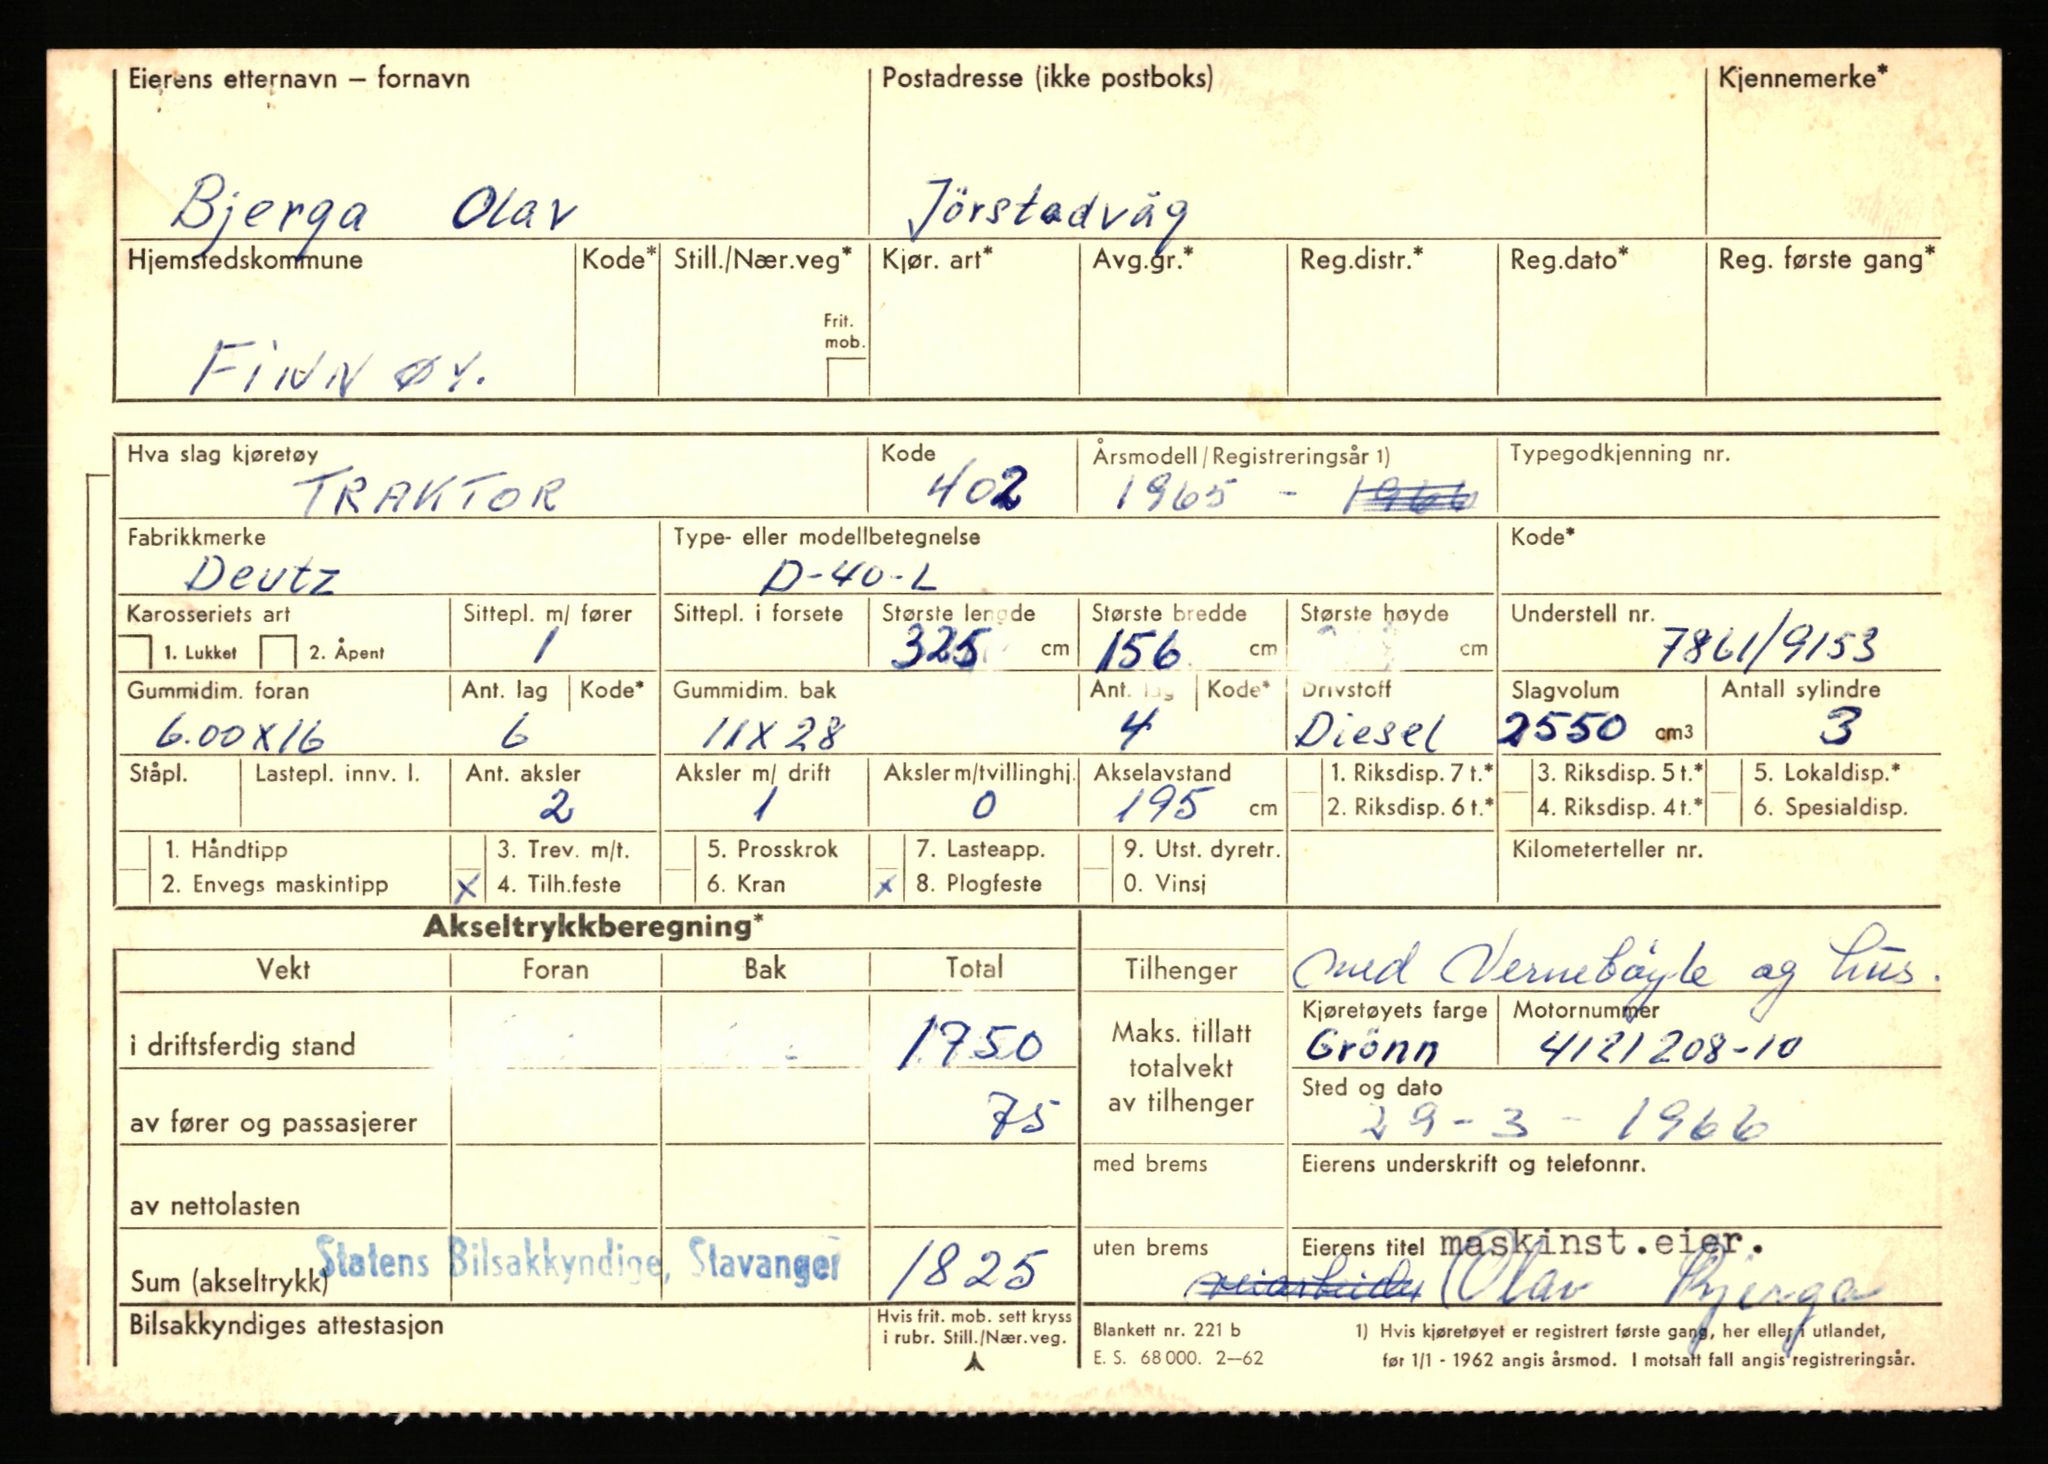 Eierens etternavn – fornavn Postadresse (ikke postboks) Kjennemerke*
Bjerga Olav Jörstadvåg
Hjemstedskommune Kode* Still./Nær.veg* Kjør. art* Avg.gr.* Reg.distr.* Reg.dato* Reg. første gang*
Frit.
mob.
FINNØY.
Hva slag kjøretøy Kode Årsmodell/Registreringsår 1) Typegodkjenning nr.
TRAKTOR 402 1965 - 1966
Fabrikkmerke Type- eller modellbetegnelse Kode*
Deutz D-40-L
Karosseriets art Sittepl. m/ fører Sittepl. i forsete Største lengde Største bredde Største høyde Understell nr.
1. Lukket 2. Åpent 1 325 cm 156 cm cm 7861/9153
Gummidim. foran Ant. lag Kode* Gummidim. bak Ant. lag Kode* Drivstoff Slagvolum Antall sylindre
6.00x16 6 11x28 4 Diesel 2550 cm3 3
Ståpl. Lastepl. innv. l. Ant. aksler Aksler m/ drift Aksler m/tvillinghj. Akselavstand 1. Riksdisp. 7 t.* 3. Riksdisp. 5 t.* 5. Lokaldisp.*
2 1 0 195 cm 2. Riksdisp. 6 t.* 4. Riksdisp. 4 t.* 6. Spesialdisp.
1. Håndtipp 3. Trev. m/t. 5. Prosskrok 7. Lasteapp. 9. Utst. dyretr. Kilometerteller nr.
2. Envegs maskintipp x 4. Tilh.feste 6. Kran x 8. Plogfeste 0. Vinsj
Akseltrykkberegning*
Vekt Foran Bak Total Tilhenger med Vernebøyle og hus.
Kjøretøyets farge Motornummer
i driftsferdig stand 1750 Maks. tillatt Grönn 4121208-10
totalvekt
Sted og dato
av fører og passasjerer 75 av tilhenger 29-3-1966
med brems Eierens underskrift og telefonnr.
av nettolasten
uten brems Eierens titel maskinst.eier.
Statens Bilsakkyndige, Stavanger
Sum (akseltrykk) 1825 Olav Bjerga
Bilsakkyndiges attestasjon Hvis frit. mob. sett kryss
i rubr. Still./Nær.veg.
Blankett nr. 221 b 1) Hvis kjøretøyet er registrert første gang, her eller i utlandet,
E. S. 68 000. 2–62 før 1/1 - 1962 angis årsmod. I motsatt fall angis registreringsår.